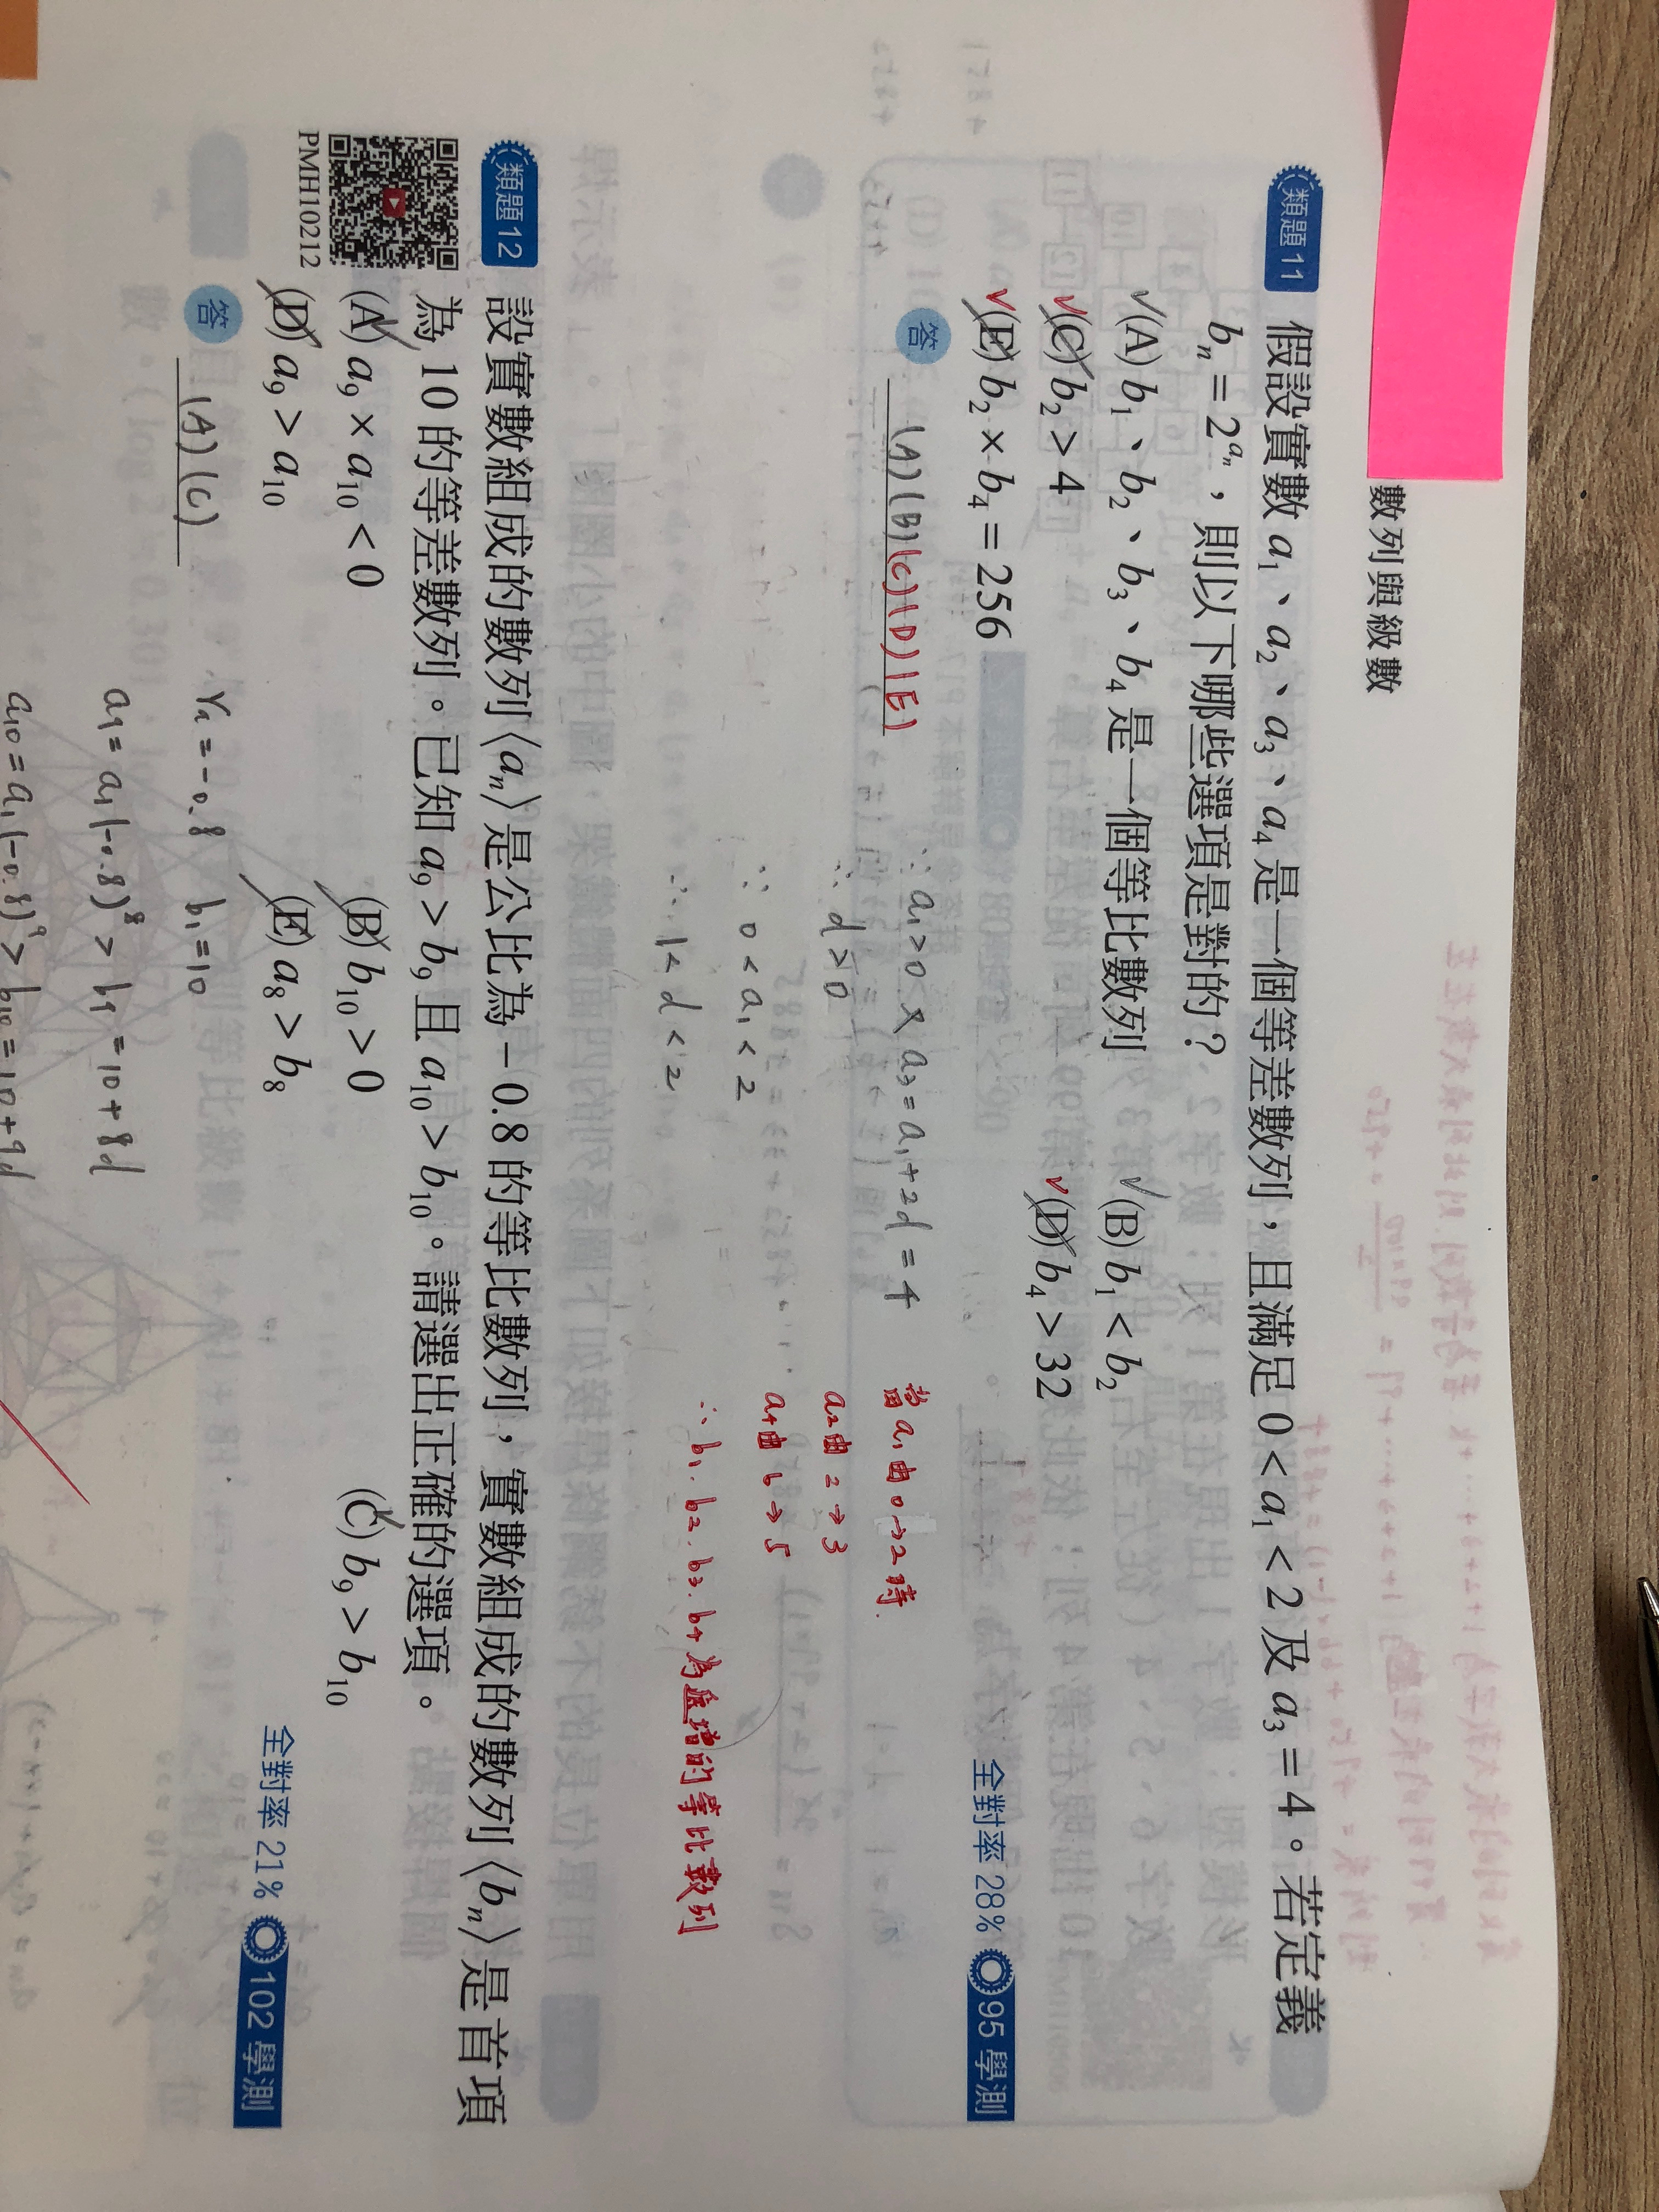 數列與級數
類題11 假設實數 a₁、a₂、a₃、a₄ 是一個等差數列，且滿足 0 < a₁ < 2 及 a₃ = 4。若定義
bₙ = 2^{aₙ}，則以下哪些選項是對的？
✓(A) b₁、b₂、b₃、b₄ 是一個等比數列 ✓(B) b₁ < b₂
✓(C) b₂ > 4 ✓(D) b₄ > 32
✓(E) b₂ × b₄ = 256 全對率 28% 95 學測
答 (A)(B)(C)(D)(E)
∵ a₁>0 又 a₃=a₁+2d=4
∴ d>0
∵ 0<a₁<2
∴ 1<d<2
當 a₁ 由 0→2 時.
a₂ 由 2→3
a₄ 由 6→5
∴ b₁. b₂. b₃. b₄ 為遞增的等比數列
類題12 設實數組成的數列⟨aₙ⟩是公比為 −0.8 的等比數列，實數組成的數列⟨bₙ⟩是首項
為 10 的等差數列。已知 a₉ > b₉ 且 a₁₀ > b₁₀。請選出正確的選項。
PMH10212
(A) a₉ × a₁₀ < 0 (B) b₁₀ > 0 (C) b₉ > b₁₀
(D) a₉ > a₁₀ (E) a₈ > b₈ 全對率 21% 102 學測
答 (A)(C)
b₁=10
a₉ = a₁(-0.8)⁸ > b₉ = 10+8d
a₁₀ = a₁(-0.8)⁹ > b₁₀ = 10+9d